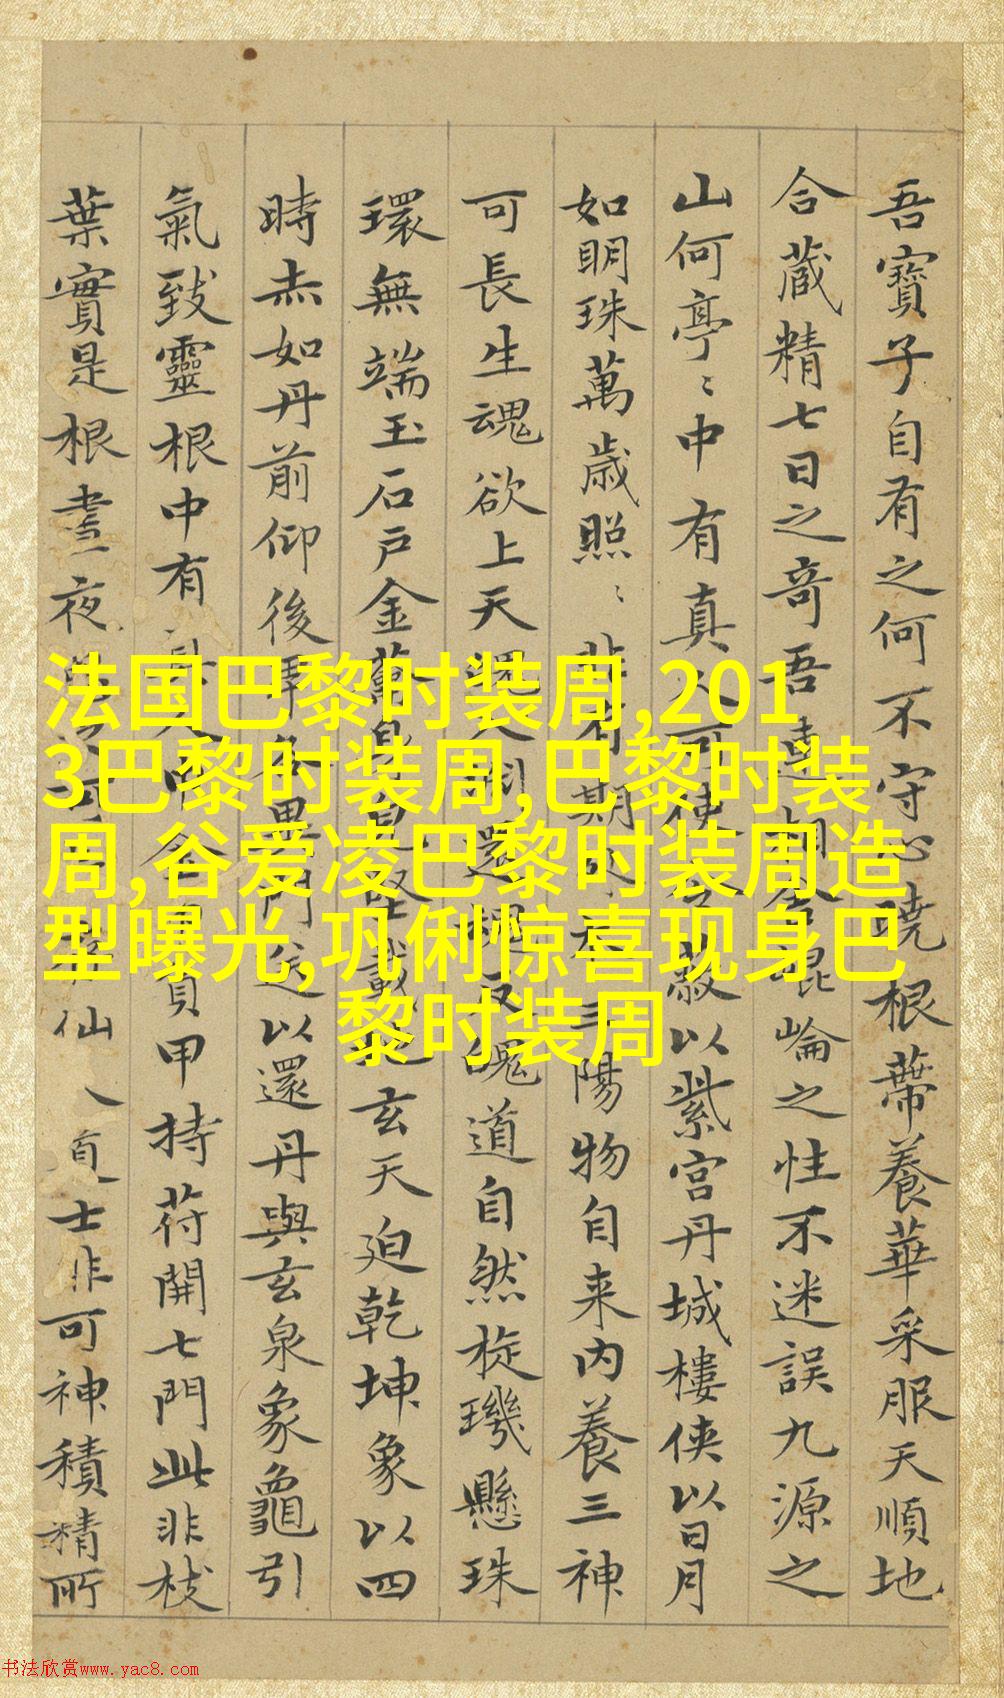 吾寶子自有之何不守心曉根蔕養華采服天順地
合蔵精七日之奇吾連相舍崐崘之性不迷誤九源之
山何亭〻中有真人可使令蔽以紫宫丹城樓侠以日月
如明珠萬歳照〻非有期三陽物自来内養三神
可長生魂欲上天還魂反魄道自然旋璣懸珠
環無端玉石戸金籥身見堅戴地玄天迫乾坤象以四
時赤如丹前仰後門送以還丹與玄泉象龜引
氣致靈根中有負甲持苻開七門此非枝
葉實是根晝夜仙士非可神積精所
法国巴黎时装周,201
3巴黎时装周,巴黎时装
周,谷爱凌巴黎时装周造
型曝光,巩俐惊喜现身巴
黎时装周
书法欣赏www.yac8.com